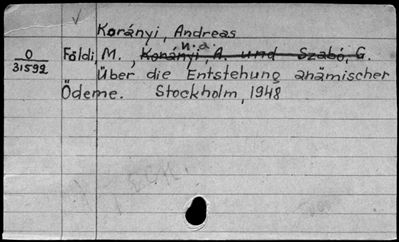 Korányi, Andreas
n.a.
O Földi, M., Korányi, A. und Szabó, G.
31592 Über die Entstehung anämischer
Ödeme. Stockholm, 1948